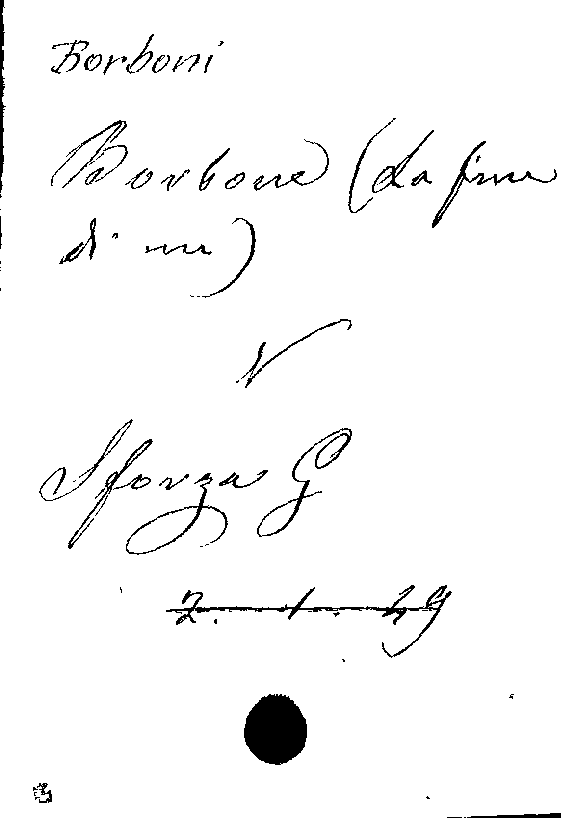 Borboni
Borbone (La fine
di un)
V
Sforza G
2. 1. 49